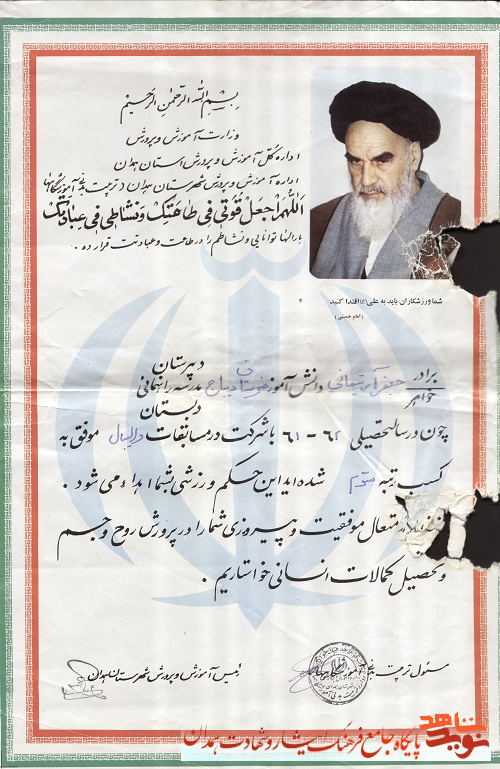 بسم الله الرحمن الرحیم
وزارت آموزش و پرورش
اداره کل آموزش و پرورش استان همدان
اداره آموزش و پرورش شهرستان همدان تربیت بدنی آموزشگاهها
اللهم اجعل قوتی فی طاعتک و نشاطی فی عبادتک
بارالها توانایی و نشاطم را در طاعت و عبادتت قرار ده .
شما ورزشکاران باید به علی (ع) اقتدا کنید
(امام خمینی)
برادر
خواهر
جعفر دانش آموز
دبیرستان
مدرسه راهنمائی
دبستان
چون در سال تحصیلی ۶۲ - ۶۱ با شرکت در مسابقات والیبال موفق به
کسب رتبه سوم شده اید این حکم ورزشی بشما اهداء می شود .
متعال موفقیت و پیروزی شما را در پرورش روح و جسم
و تحصیل کمالات انسانی خواستاریم .
مسئول تربیت بدنی آموزشگاهها
رئیس آموزش و پرورش شهرستان همدان
نوید شاهد
پایگاه جامع فرهنگ ایثار و شهادت همدان